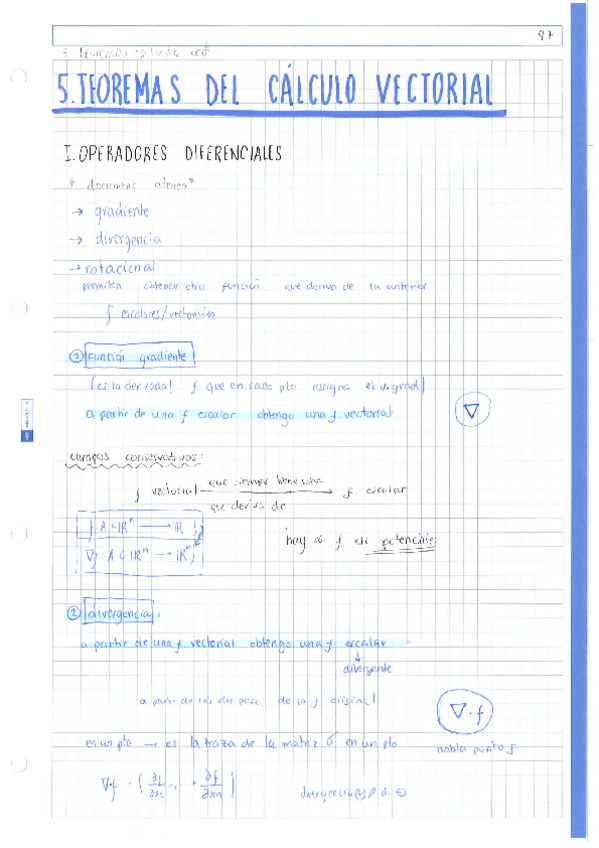 87
5. TEOREMAS DEL CÁLCULO VECTORIAL
I. OPERADORES DIFERENCIALES
→ gradiente
→ divergencia
→ rotacional
permiten obtener otra función que deriva de la anterior
f escalares/vectoriales
① Función gradiente
(es la derivada! f que en cada pto asigna el v.grad)
a partir de una f escalar obtengo una f vectorial
∇
campos conservativos:
f vectorial que siempre tiene una f escalar
que deriva de
f: A ⊂ ℝⁿ → ℝ
∇f: A ⊂ ℝⁿ → ℝⁿ
hay ∞ f de potencial
② divergencia
a partir de una f vectorial obtengo una f escalar
↓
divergente
a partir de las der. parc. de la f original
∇·f
en un pto → es la traza de la matriz en un pto
nabla punto f